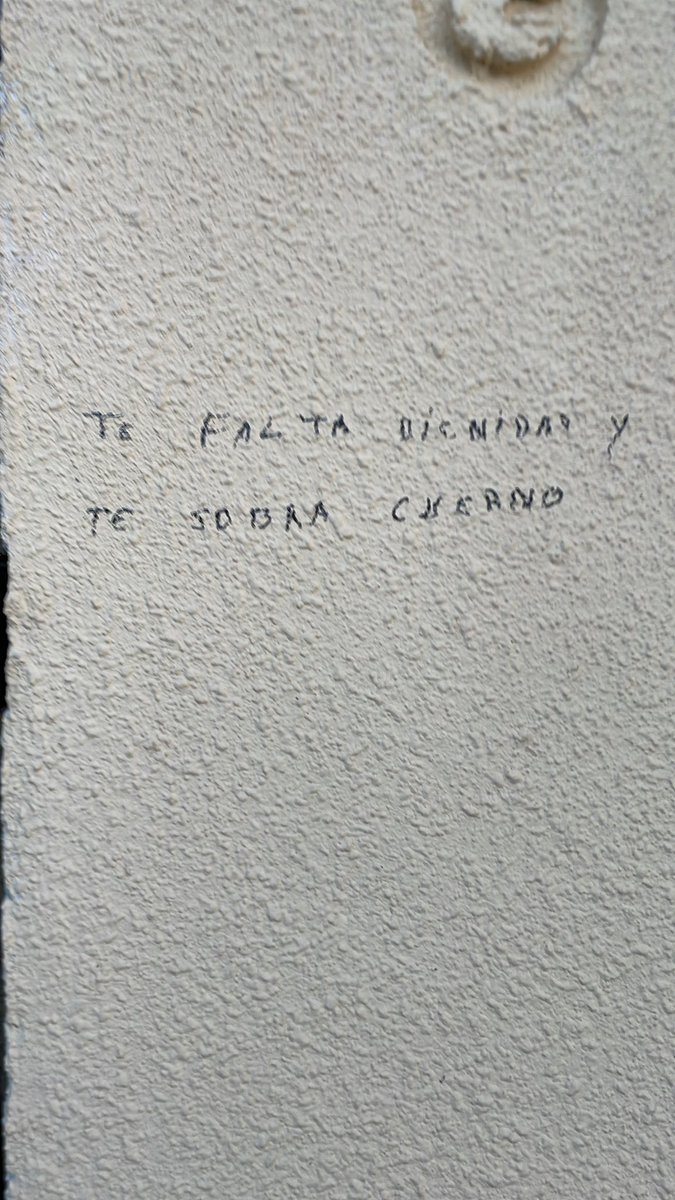 TE FALTA DIGNIDAD Y
TE SOBRA CUERNO